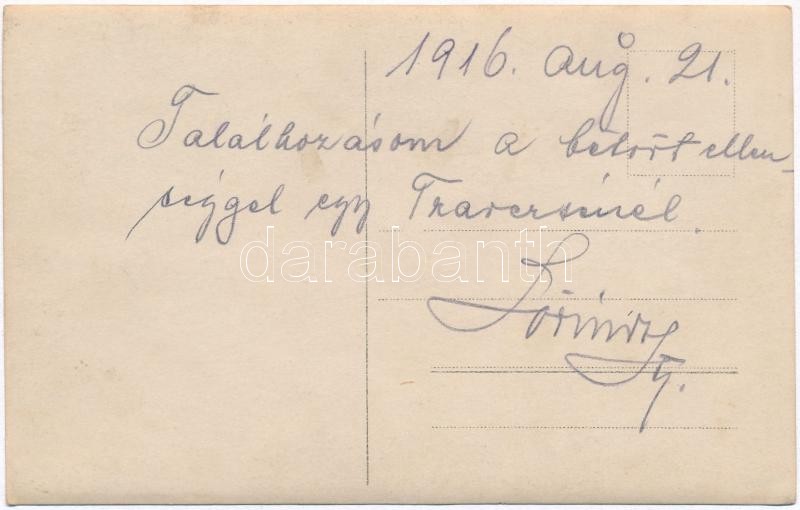 1916. aug. 21.
Találkozásom a betört ellen-
séggel egy Traversnél.
darabanth